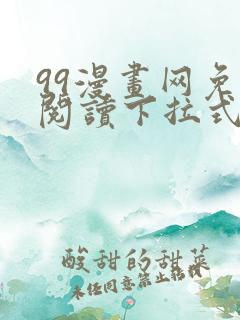 99漫畫网免
閱讀下拉式
酸甜的甜菜
未经同意禁止转载